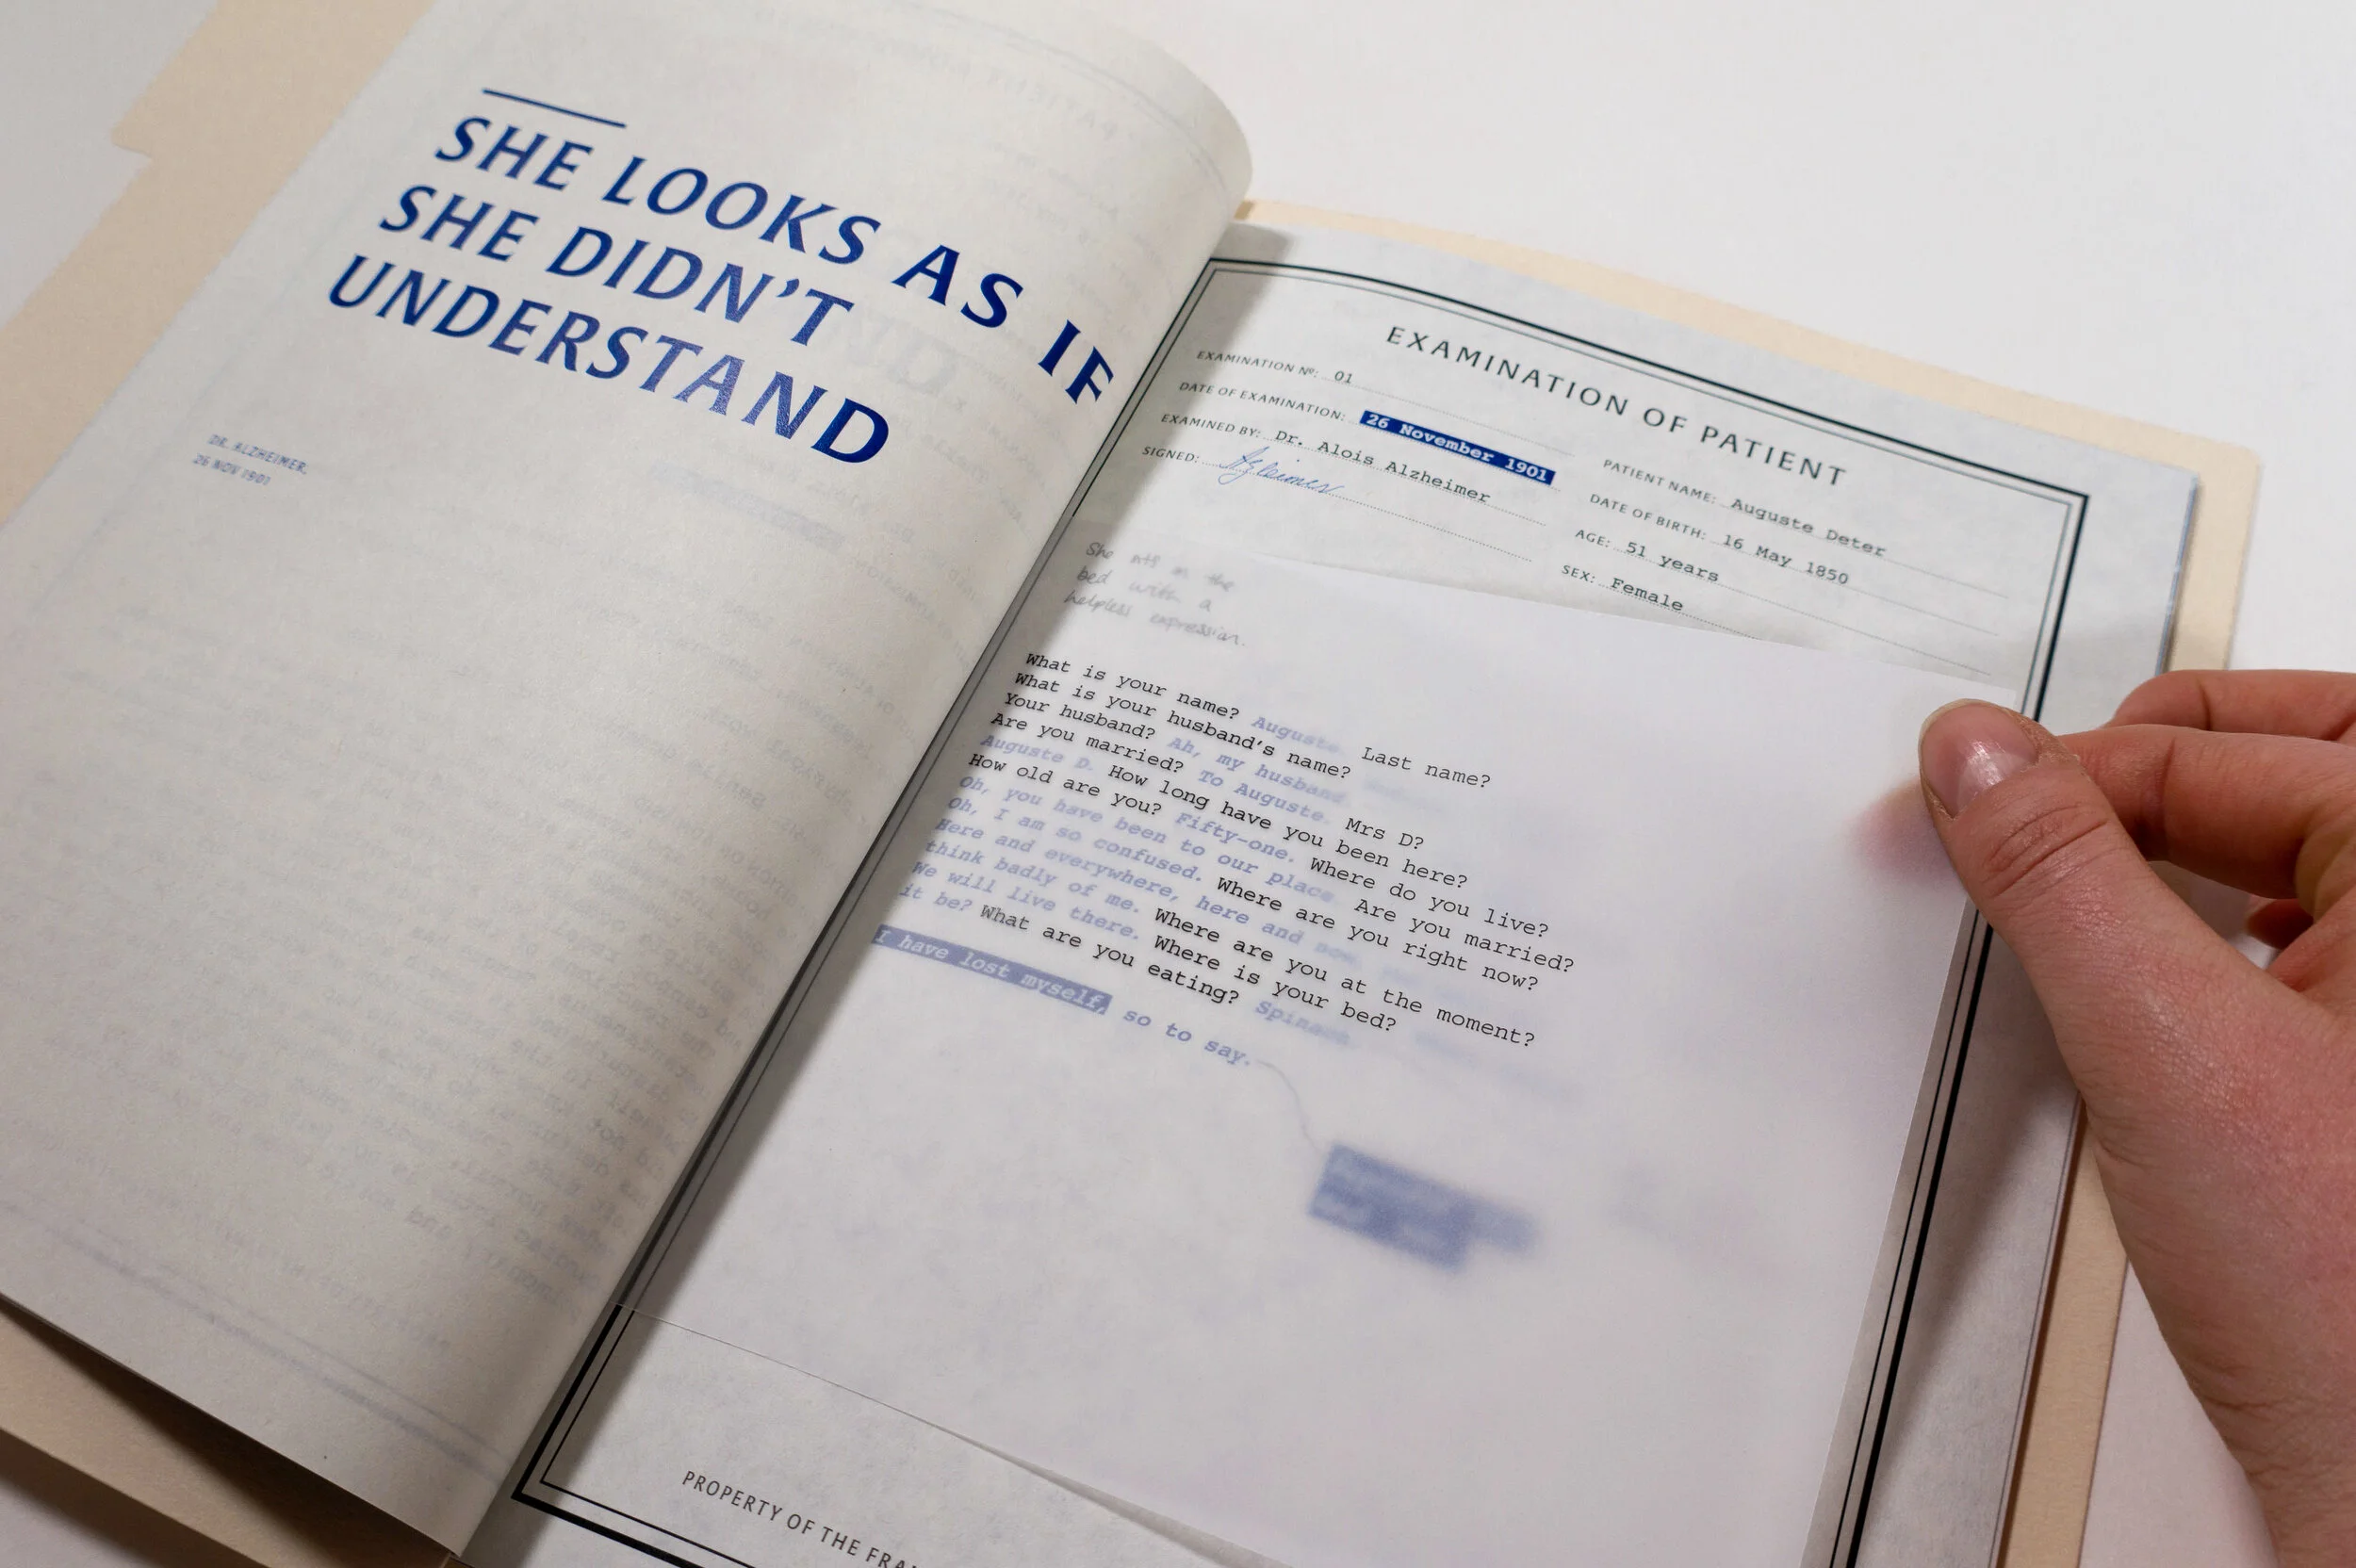 SHE LOOKS AS IF
SHE DIDN'T
UNDERSTAND
DR. ALZHEIMER,
26 NOV 1901
EXAMINATION OF PATIENT
EXAMINATION Nº: 01
DATE OF EXAMINATION: 26 November 1901
EXAMINED BY: Dr. Alois Alzheimer
SIGNED:
PATIENT NAME: Auguste Deter
DATE OF BIRTH: 16 May 1850
AGE: 51 years
SEX: Female
She sits on the
bed with a
helpless expression.
What is your name? Auguste Last name?
What is your husband's name?
Your husband? Ah, my husband. Mrs D?
Are you married? To Auguste.
Auguste D. How long have you been here?
How old are you? Fifty-one. Where do you live?
Oh, you have been to our place Are you married?
Oh, I am so confused. Where are you right now?
Here and everywhere, here and now,
think badly of me. Where are you at the moment?
We will live there. Where is your bed?
it be? What are you eating?
I have lost myself, so to say.
PROPERTY OF THE